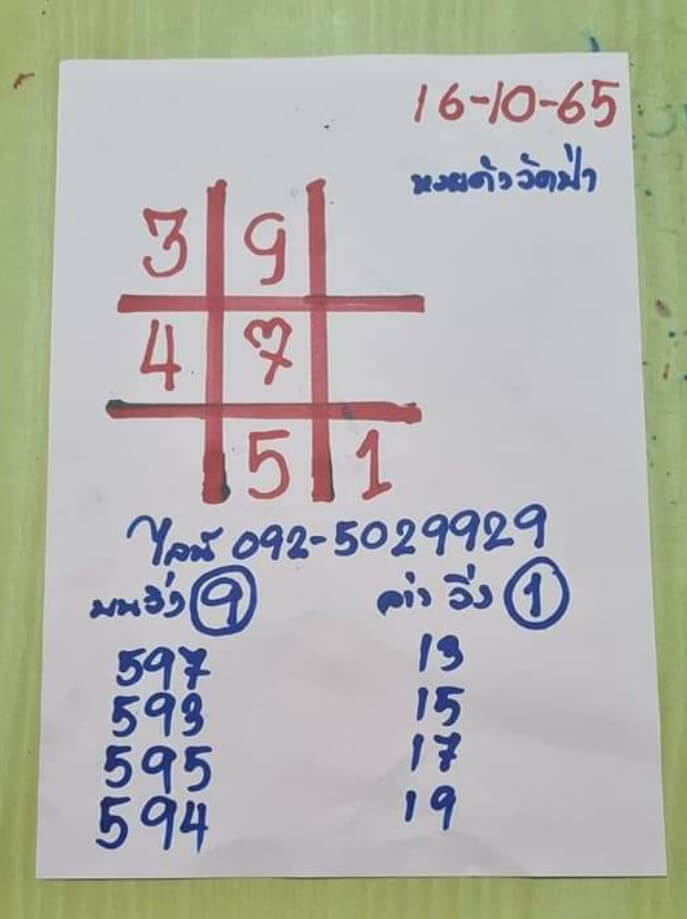 16-10-65
หงษ์ดำวัดป่า
3 9
4 7
5 1
ไลน์ 092-5029929
บนวิ่ง 9 ล่าง วิ่ง 1
597 13
593 15
595 17
594 19